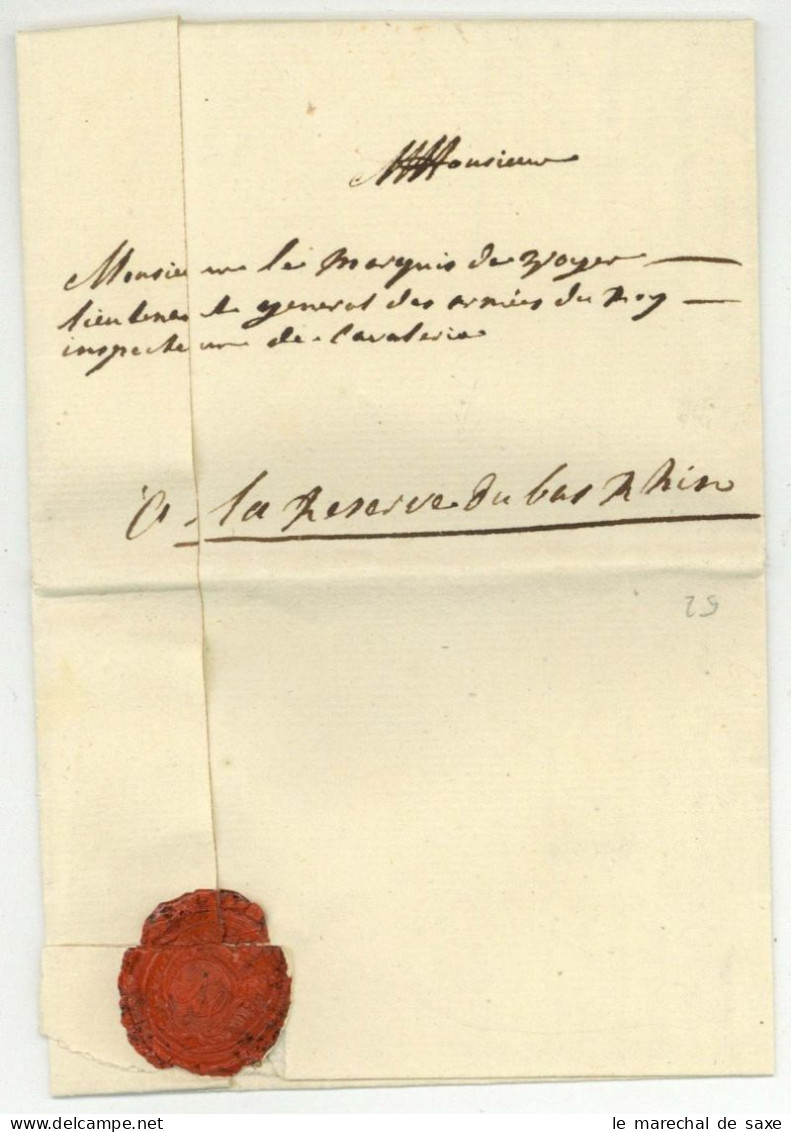 Monsieur
Monsieur le Marquis de Voyer
lieutenent general des armées du Roy
inspecteur de Cavalerie
A la Reserve du bas Rhin
le marechal de saxe